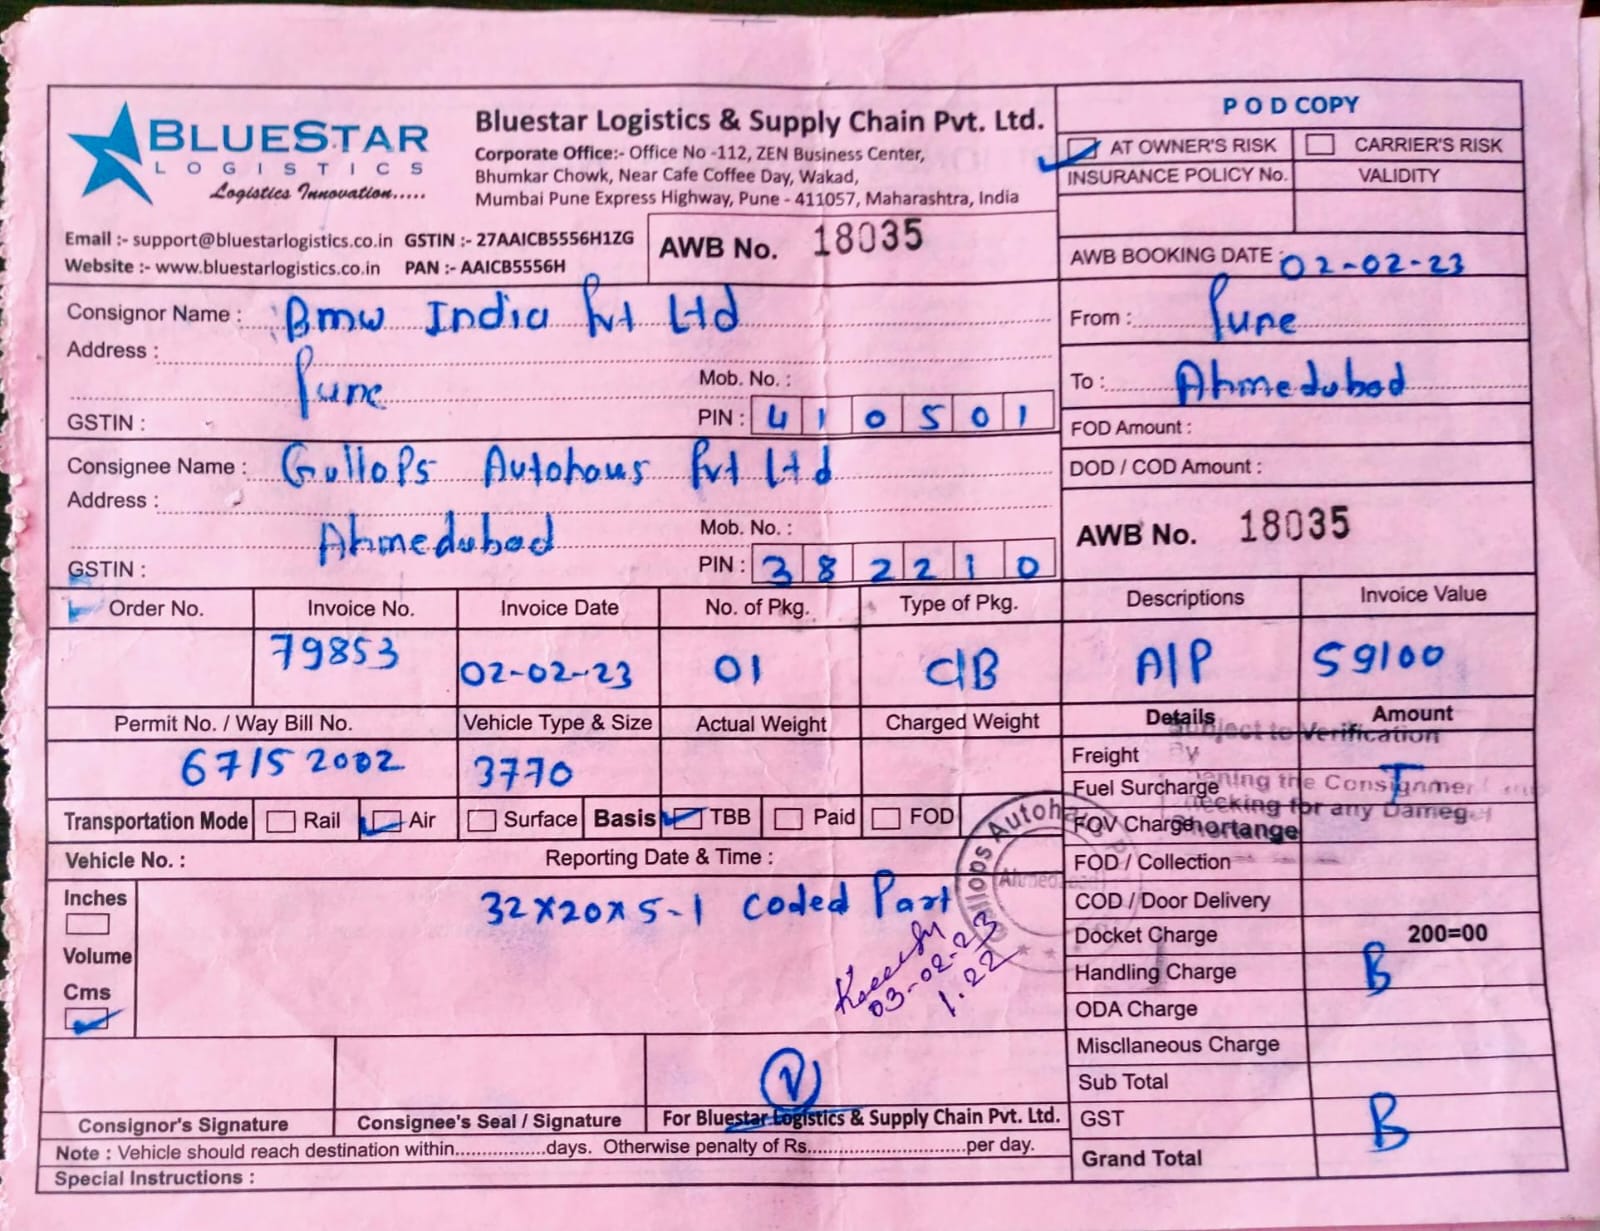 BLUESTAR
LOGISTICS
Logistics Innovation.....
Bluestar Logistics & Supply Chain Pvt. Ltd.
Corporate Office:- Office No -112, ZEN Business Center,
Bhumkar Chowk, Near Cafe Coffee Day, Wakad,
Mumbai Pune Express Highway, Pune - 411057, Maharashtra, India
Email :- support@bluestarlogistics.co.in GSTIN :- 27AAICB5556H1ZG
Website :- www.bluestarlogistics.co.in PAN :- AAICB5556H
AWB No. 18035
POD COPY
AT OWNER'S RISK CARRIER'S RISK
INSURANCE POLICY No. VALIDITY
AWB BOOKING DATE : 02-02-23
Consignor Name : Bmw India Pvt Ltd
Address :
Pune
Mob. No. :
GSTIN : PIN : 410501
From : Pune
To : Ahmedabad
FOD Amount :
DOD / COD Amount :
Consignee Name : Gallops Autohaus Pvt Ltd
Address :
Ahmedabad
Mob. No. :
GSTIN : PIN : 382210
AWB No. 18035
Order No. Invoice No. Invoice Date No. of Pkg. Type of Pkg. Descriptions Invoice Value
79853 02-02-23 01 C/B A/P 59100
Permit No. / Way Bill No. Vehicle Type & Size Actual Weight Charged Weight Details Amount
67152002 3770
Subject to Verification
By
the Consignment
for any Dameg
Shortange
Transportation Mode Rail Air Surface Basis TBB Paid FOD
Vehicle No. : Reporting Date & Time :
Inches
Volume
Cms
32x20x5-1 Coded Part
03-02-23
1.22
Gallops Autohaus
Ahmedabad
Freight
Fuel Surcharge
FOV Charge
FOD / Collection
COD / Door Delivery
Docket Charge 200=00
Handling Charge
ODA Charge
Miscllaneous Charge
Sub Total
GST
Grand Total
T
B
B
Consignor's Signature Consignee's Seal / Signature For Bluestar Logistics & Supply Chain Pvt. Ltd.
Note : Vehicle should reach destination within.................days. Otherwise penalty of Rs..............................per day.
Special Instructions :